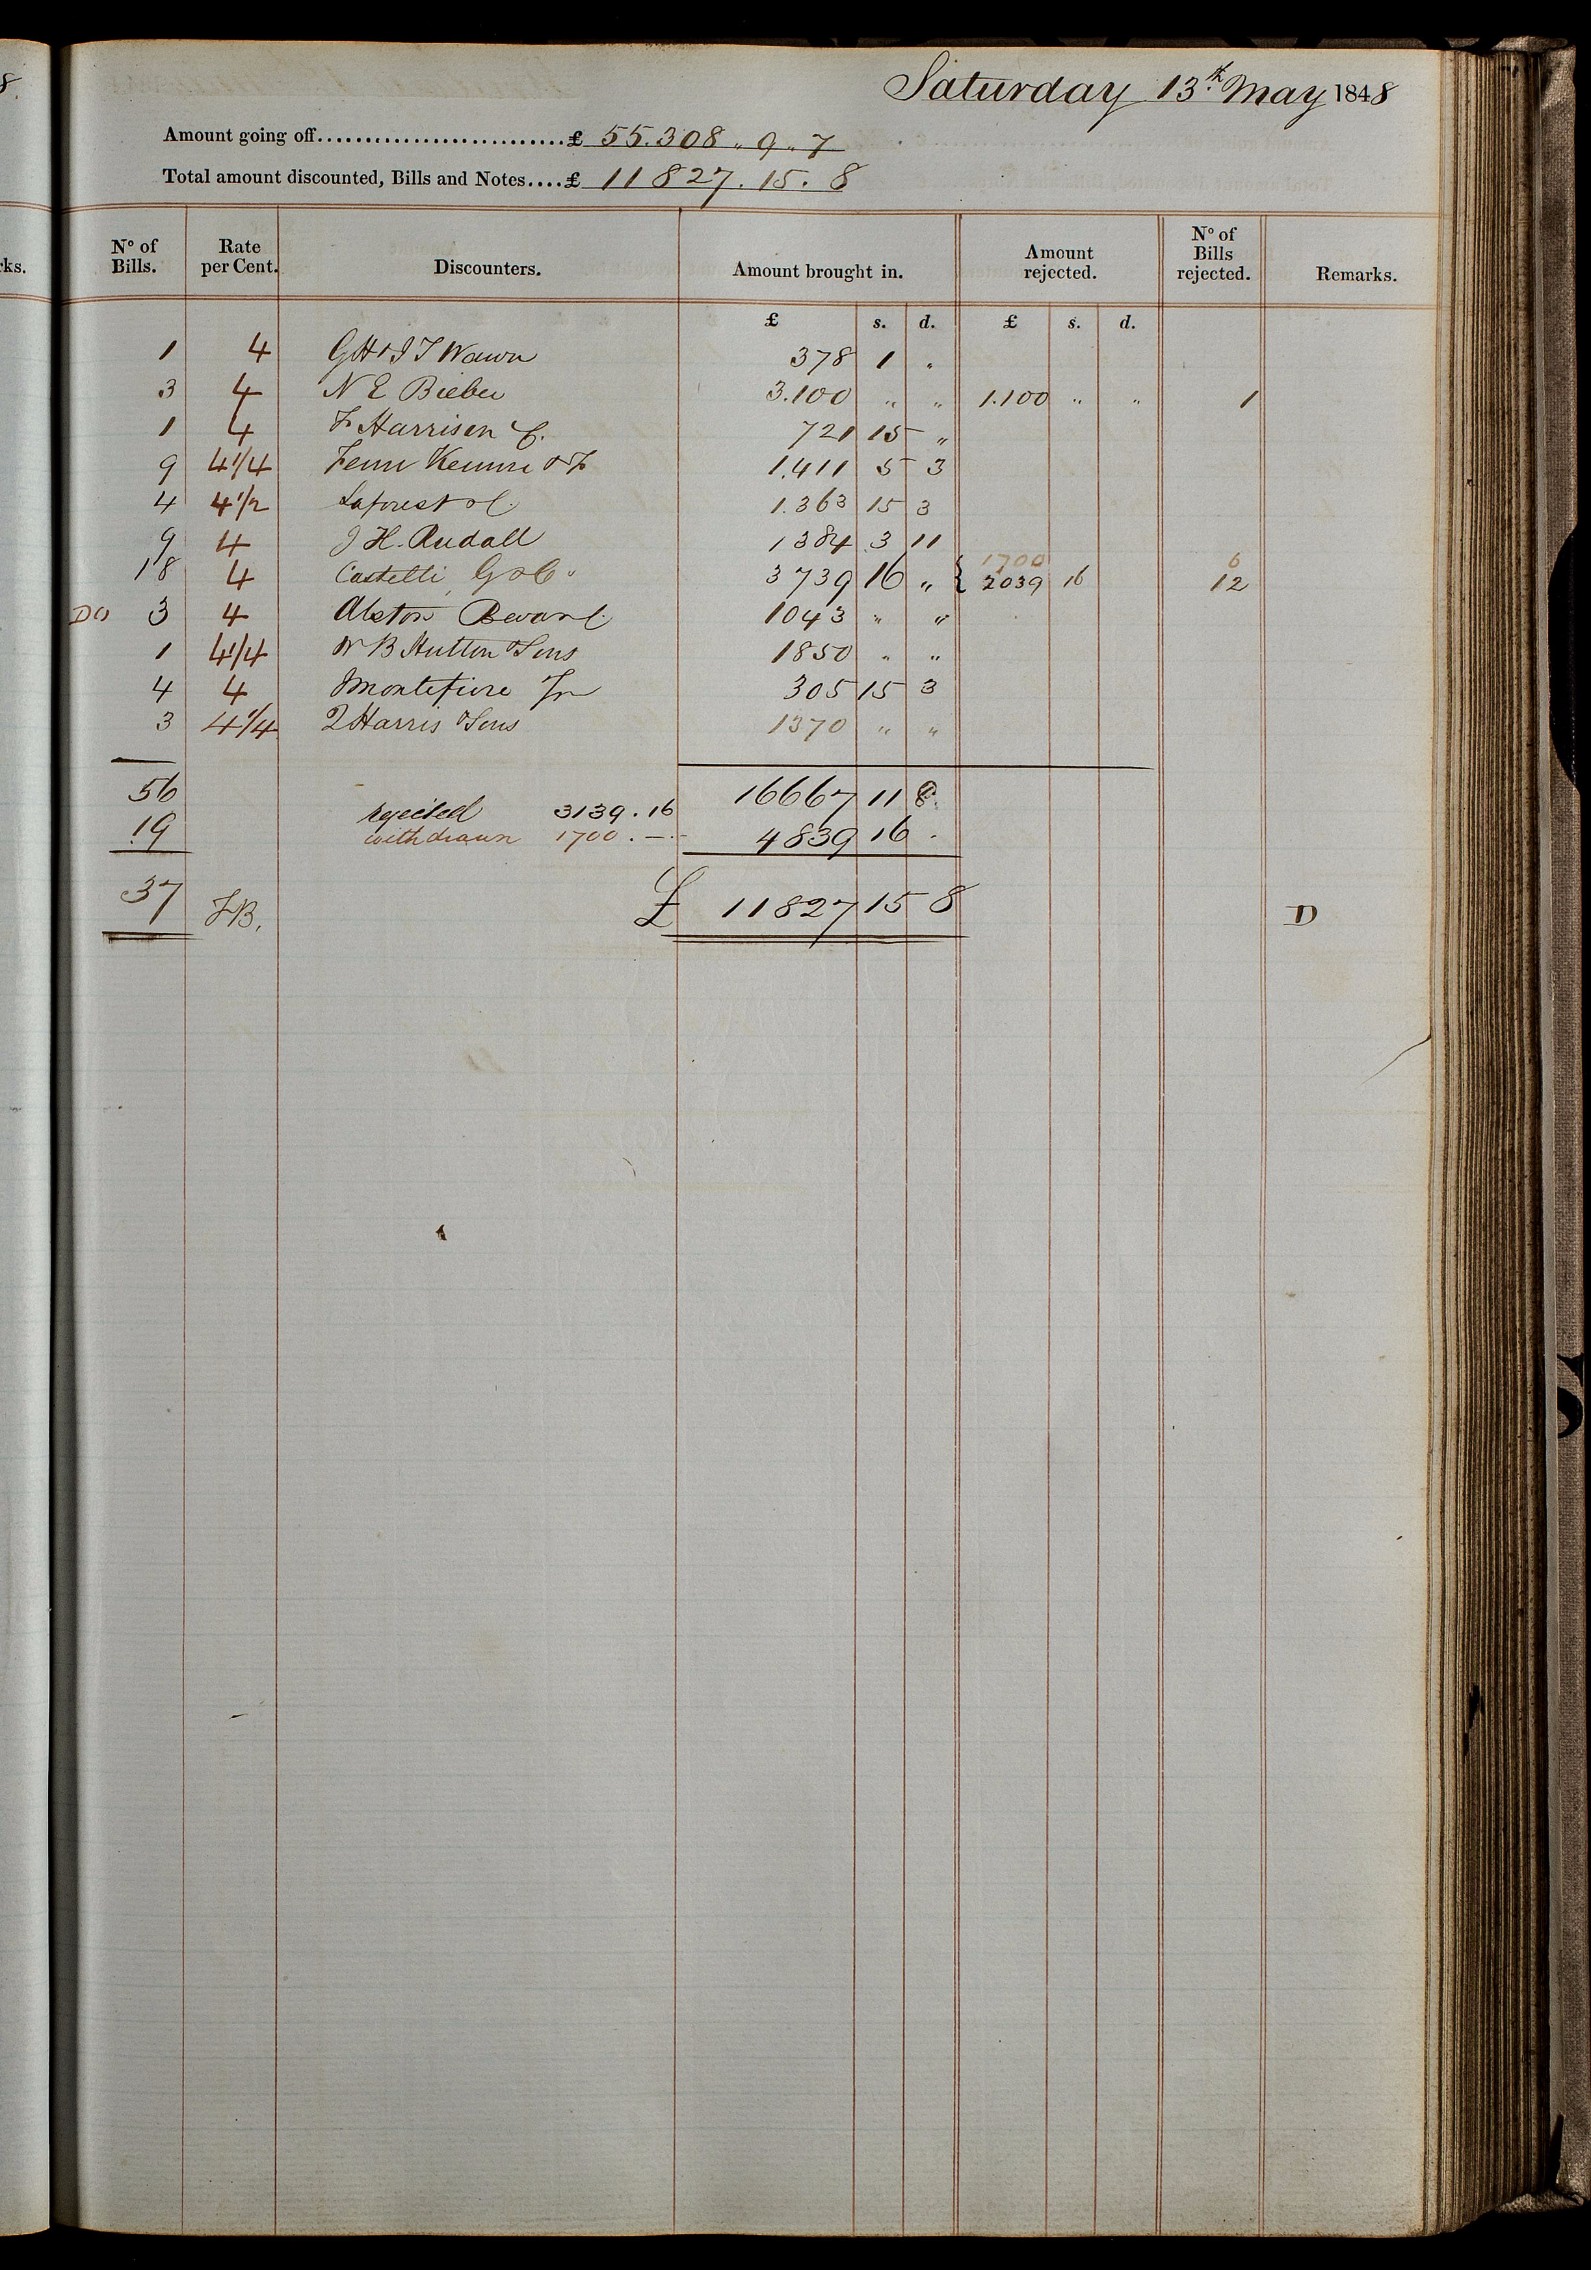 8
Saturday 13th May 1848
Amount going off........................... £ 55.308 " 9 " 7
Total amount discounted, Bills and Notes.... £ 11827. 15. 8
rks.
No of Bills. Rate per Cent. Discounters. Amount brought in. Amount rejected. No of Bills rejected. Remarks.
£ s. d. £ s. d.
1 4 GH & I T Wawn 378 1 "
3 4 N E Bieber 3.100 " " 1.100 " " 1
1 4 Fr Harrison C. 721 15 "
9 4 1/4 Fenn & F 1.411 5 3
4 4 1/2 Laforest & C. 1.363 15 3
9 4 J H. Rudall 1384 3 11
1700 6
18 4 Castelli, G & Co " 3739 16 " { 2039 16 12
Do 3 4 Alston Bevan C. 1043 " "
1 4 1/4 W B Hutton & Sons 1850 " "
4 4 Montefiore Jr 305 15 3
3 4 1/4 Q Harris & Sons 1370 " "
56 16667 11 8
rejected 3139 . 16
19 withdrawn 1700 . — . - 4839 16 .
37 FB. £ 11827 15 8 D